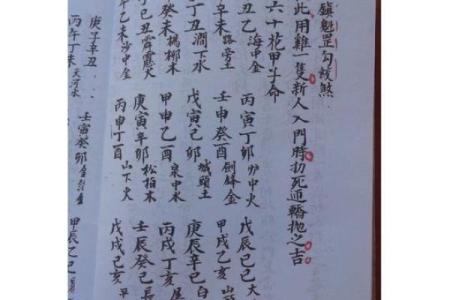 鎮魁罡勾絞煞
此用雞一隻新人入門時扔死逥轎拋之吉
六十花甲子命
乙丑 海中金 丙寅丁卯 炉中火 戊辰己巳 大
辛未 路旁土 壬申癸酉 劍鋒金 甲戌乙亥 山
丁丑 澗下水 戊寅己卯 城頭土 庚辰辛巳 白
癸未 楊柳木 甲申乙酉 泉中水 丙戌丁亥 屋
己丑 霹靂火 庚寅辛卯 松柏木 壬辰癸巳 長
乙未 沙中金 丙申丁酉 山下火 戊戌己亥 平
庚子辛丑 壬寅癸卯 金箔金 甲辰乙巳
丙午丁未 天河水